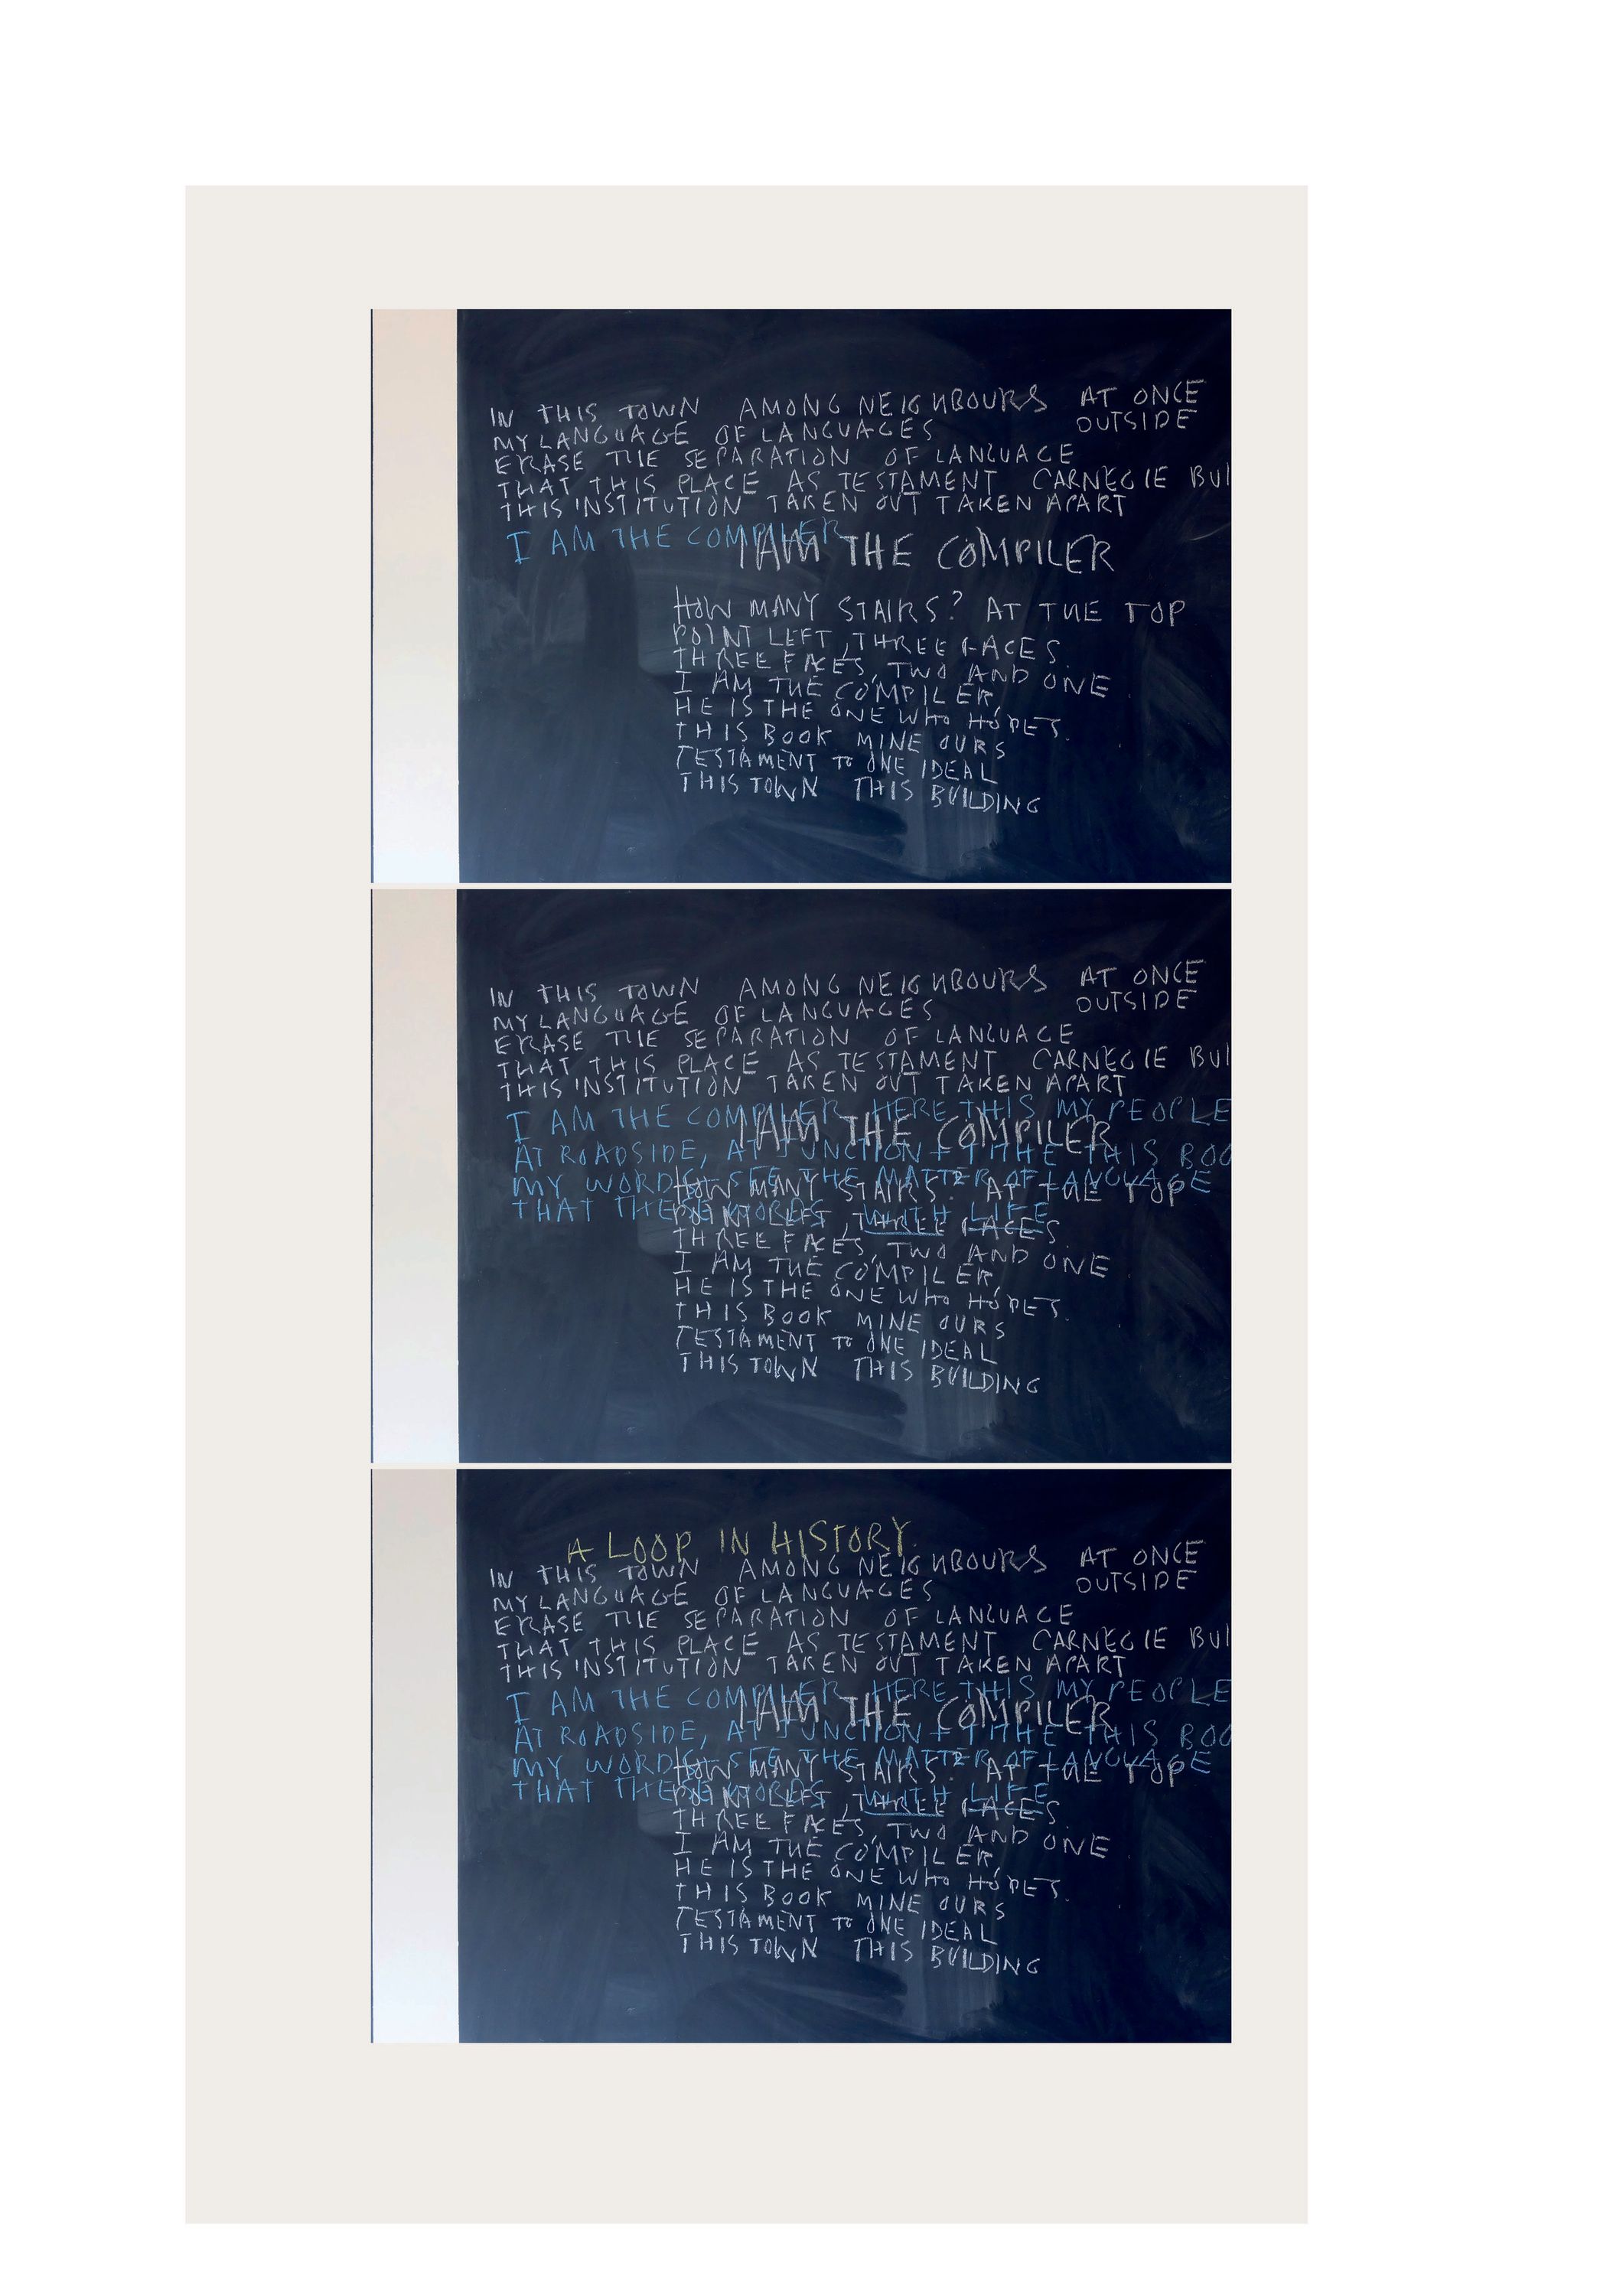 IN THIS TOWN AMONG NEIGHBOURS AT ONCE
OUTSIDE
MY LANGUAGE OF LANGUAGES
ERASE THE SEPARATION OF LANGUAGE
THAT THIS PLACE AS TESTAMENT CARNEGIE BUI
THIS INSTITUTION TAKEN OUT TAKEN APART
I AM THE COMPILER
I AM THE COMPILER
HOW MANY STAIRS? AT THE TOP
POINT LEFT, THREE FACES.
THREE FACES, TWO AND ONE
I AM THE COMPILER,
HE IS THE ONE WHO HOPES.
THIS BOOK MINE OURS
TESTAMENT TO ONE IDEAL
THIS TOWN THIS BUILDING
IN THIS TOWN AMONG NEIGHBOURS AT ONCE
OUTSIDE
MY LANGUAGE OF LANGUAGES
ERASE THE SEPARATION OF LANGUAGE
THAT THIS PLACE AS TESTAMENT CARNEGIE BUI
THIS INSTITUTION TAKEN OUT TAKEN APART
I AM THE COMPILER HERE THIS MY PEOPLE
I AM THE COMPILER
AT ROADSIDE, AT JUNCTION + TITHE THIS BOO
MY WORDS, SEE THE MATTER OF LANGUAGE
HOW MANY STAIRS? AT THE TOP
THAT THESE WORDS WITH LIFE
POINT LEFT, THREE FACES.
THREE FACES, TWO AND ONE
I AM THE COMPILER,
HE IS THE ONE WHO HOPES.
THIS BOOK MINE OURS
TESTAMENT TO ONE IDEAL
THIS TOWN THIS BUILDING
A LOOP IN HISTORY.
IN THIS TOWN AMONG NEIGHBOURS AT ONCE
OUTSIDE
MY LANGUAGE OF LANGUAGES
ERASE THE SEPARATION OF LANGUAGE
THAT THIS PLACE AS TESTAMENT CARNEGIE BUI
THIS INSTITUTION TAKEN OUT TAKEN APART
I AM THE COMPILER HERE THIS MY PEOPLE
I AM THE COMPILER
AT ROADSIDE, AT JUNCTION + TITHE THIS BOO
MY WORDS, SEE THE MATTER OF LANGUAGE
HOW MANY STAIRS? AT THE TOP
THAT THESE WORDS WITH LIFE
POINT LEFT, THREE FACES.
THREE FACES, TWO AND ONE
I AM THE COMPILER,
HE IS THE ONE WHO HOPES.
THIS BOOK MINE OURS
TESTAMENT TO ONE IDEAL
THIS TOWN THIS BUILDING